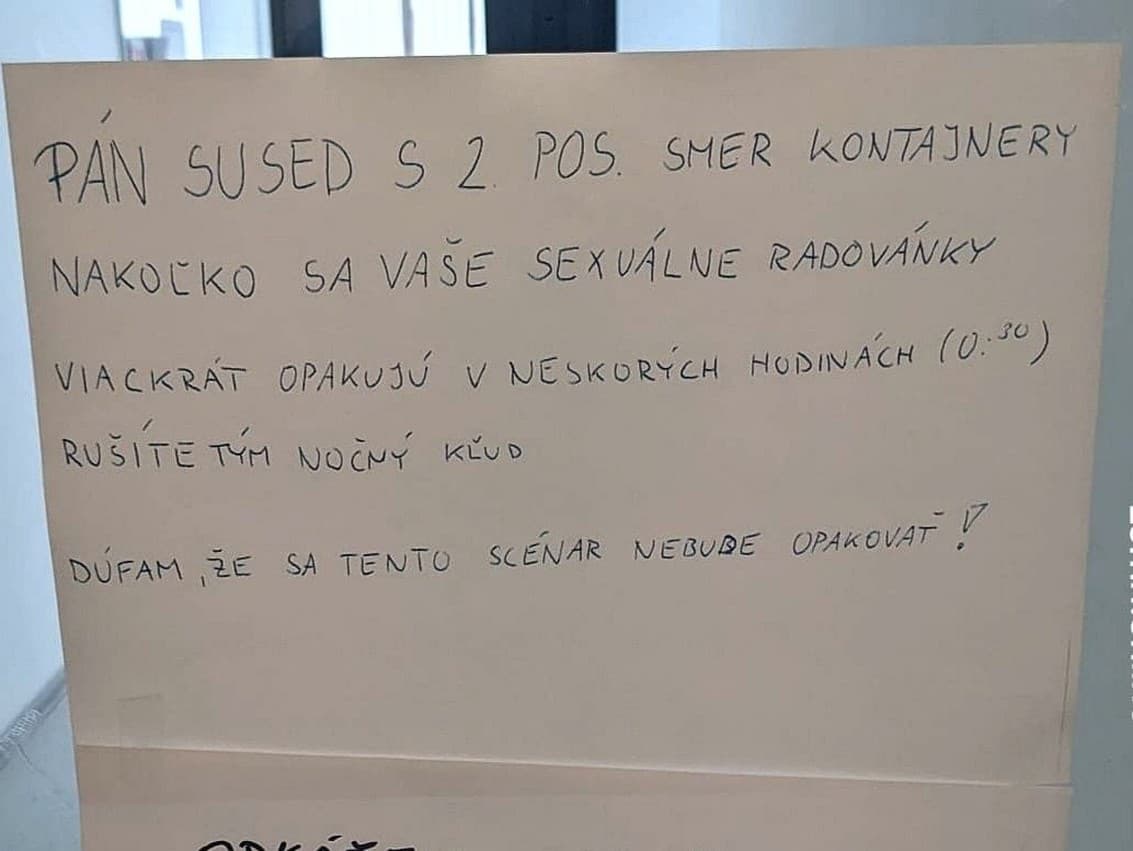 PÁN SUSED S 2. POS. SMER KONTAJNERY
NAKOĽKO SA VAŠE SEXUÁLNE RADOVÁNKY
VIACKRÁT OPAKUJÚ V NESKORÝCH HODINÁCH (0:30)
RUŠÍTE TÝM NOČNÝ KĽUD
DÚFAM, ŽE SA TENTO SCÉNAR NEBUDE OPAKOVAŤ!